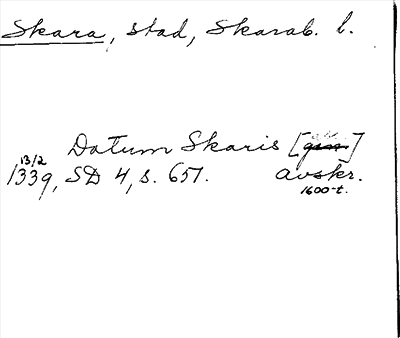 Skara, stad, Skarab. l.
Datum Skaris
13/2
1339, SD 4, s. 651. Avskr.
1600-t.